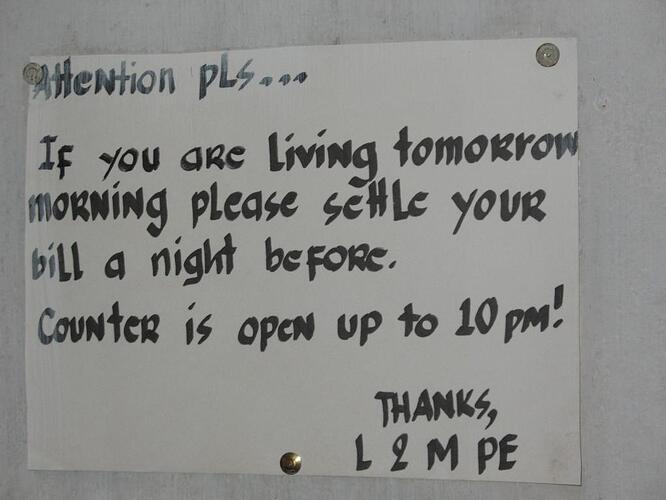 Attention pls...
If you are living tomorrow
morning please settle your
bill a night before.
Counter is open up to 10 pm!
THANKS,
L & M PE